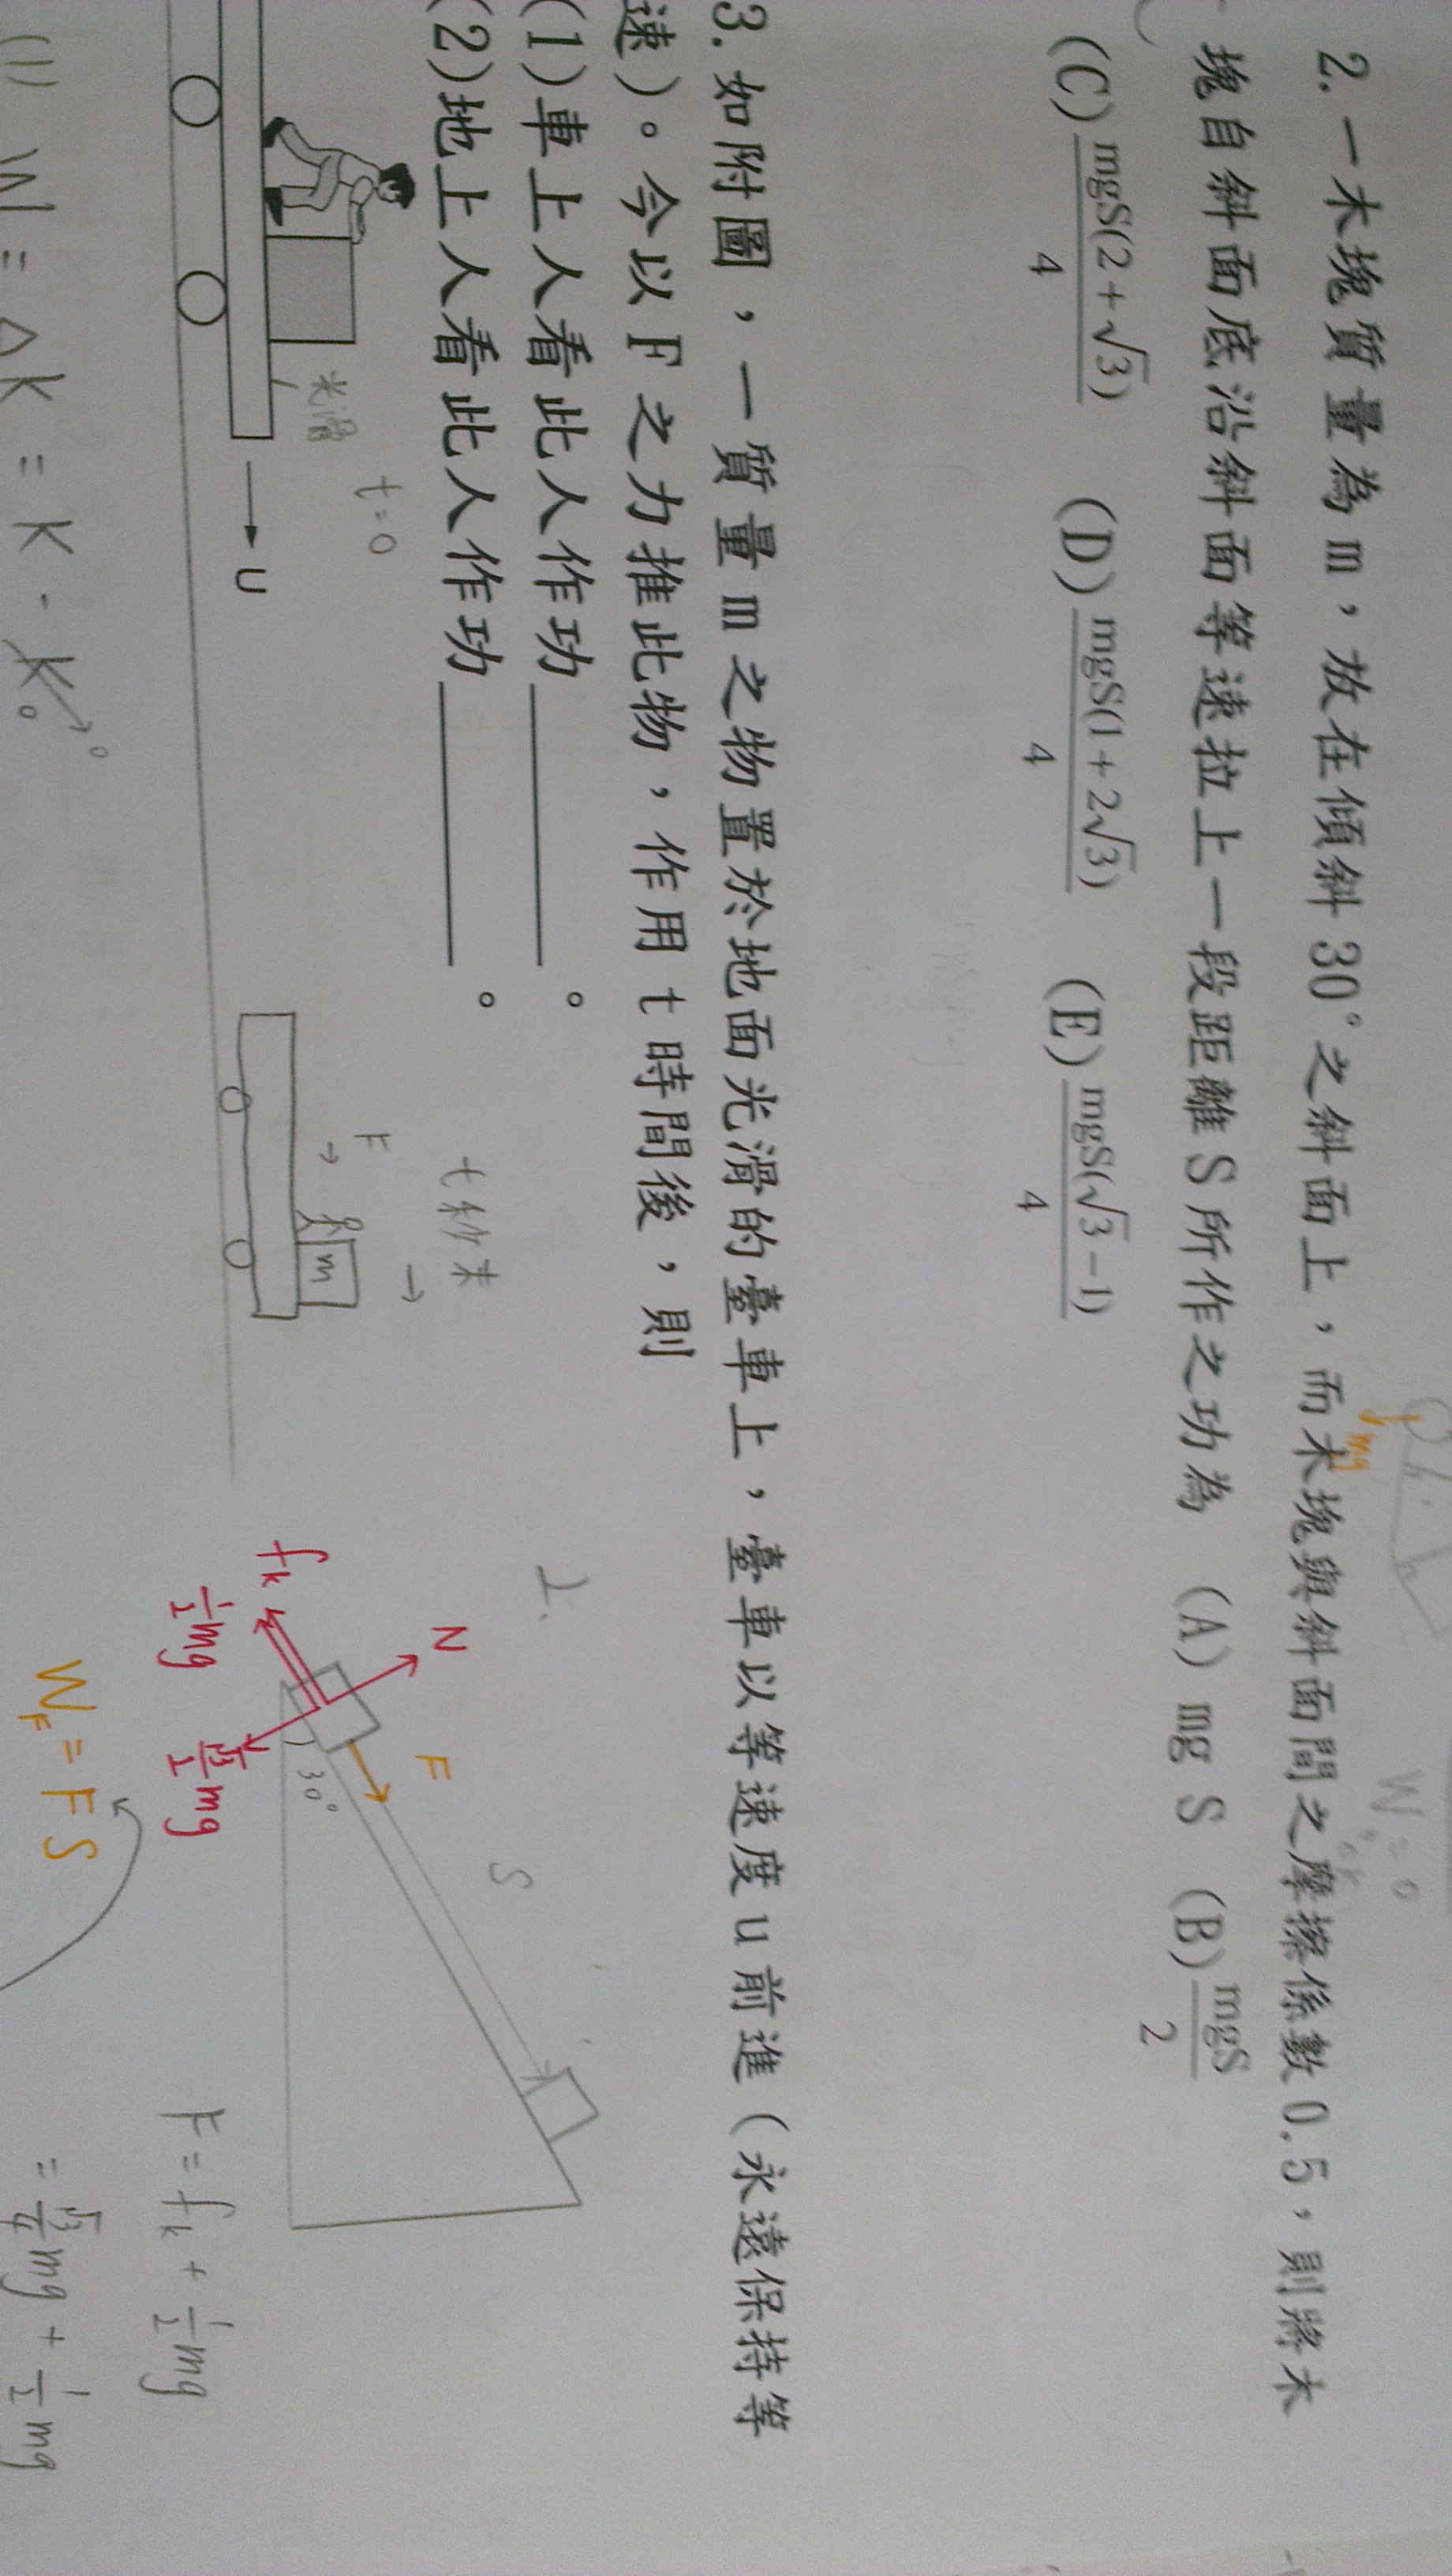 2.一木塊質量為m，放在傾斜30°之斜面上，而木塊與斜面間之摩擦係數0.5，則將木
塊自斜面底沿斜面等速拉上一段距離S所作之功為 (A) mg S (B) mgS/2
(C) mgS(2+√3)/4 (D) mgS(1+2√3)/4 (E) mgS(√3-1)/4
mg
h
W = 0
3.如附圖，一質量m之物置於地面光滑的臺車上，臺車以等速度u前進（永遠保持等
速）。今以F之力推此物，作用t時間後，則
(1)車上人看此人作功________。
(2)地上人看此人作功________。
光滑
t=0
U
t秒末
F →
m
→
2.
N
F
S
fk
1/2 mg
√3/2 mg
30°
F = fk + 1/2 mg
= √3/4 mg + 1/2 mg
WF = F S
(1) W = ΔK = K - K0 0